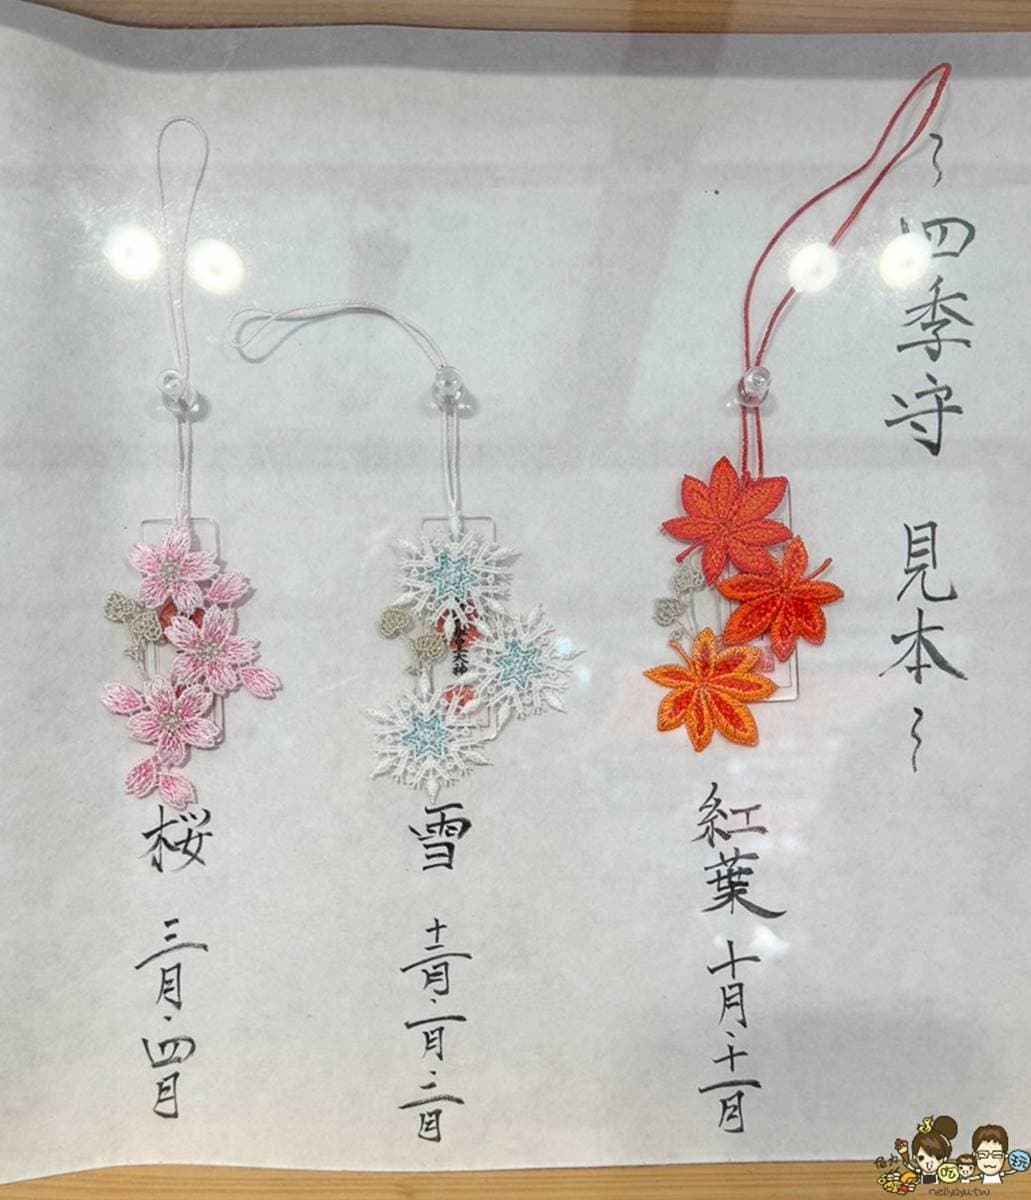 ~四季守 見本~
紅葉 十月・十一月
雪 十二月・一月・二月
桜 三月・四月
大神
吃
玩
nellyyu.tw